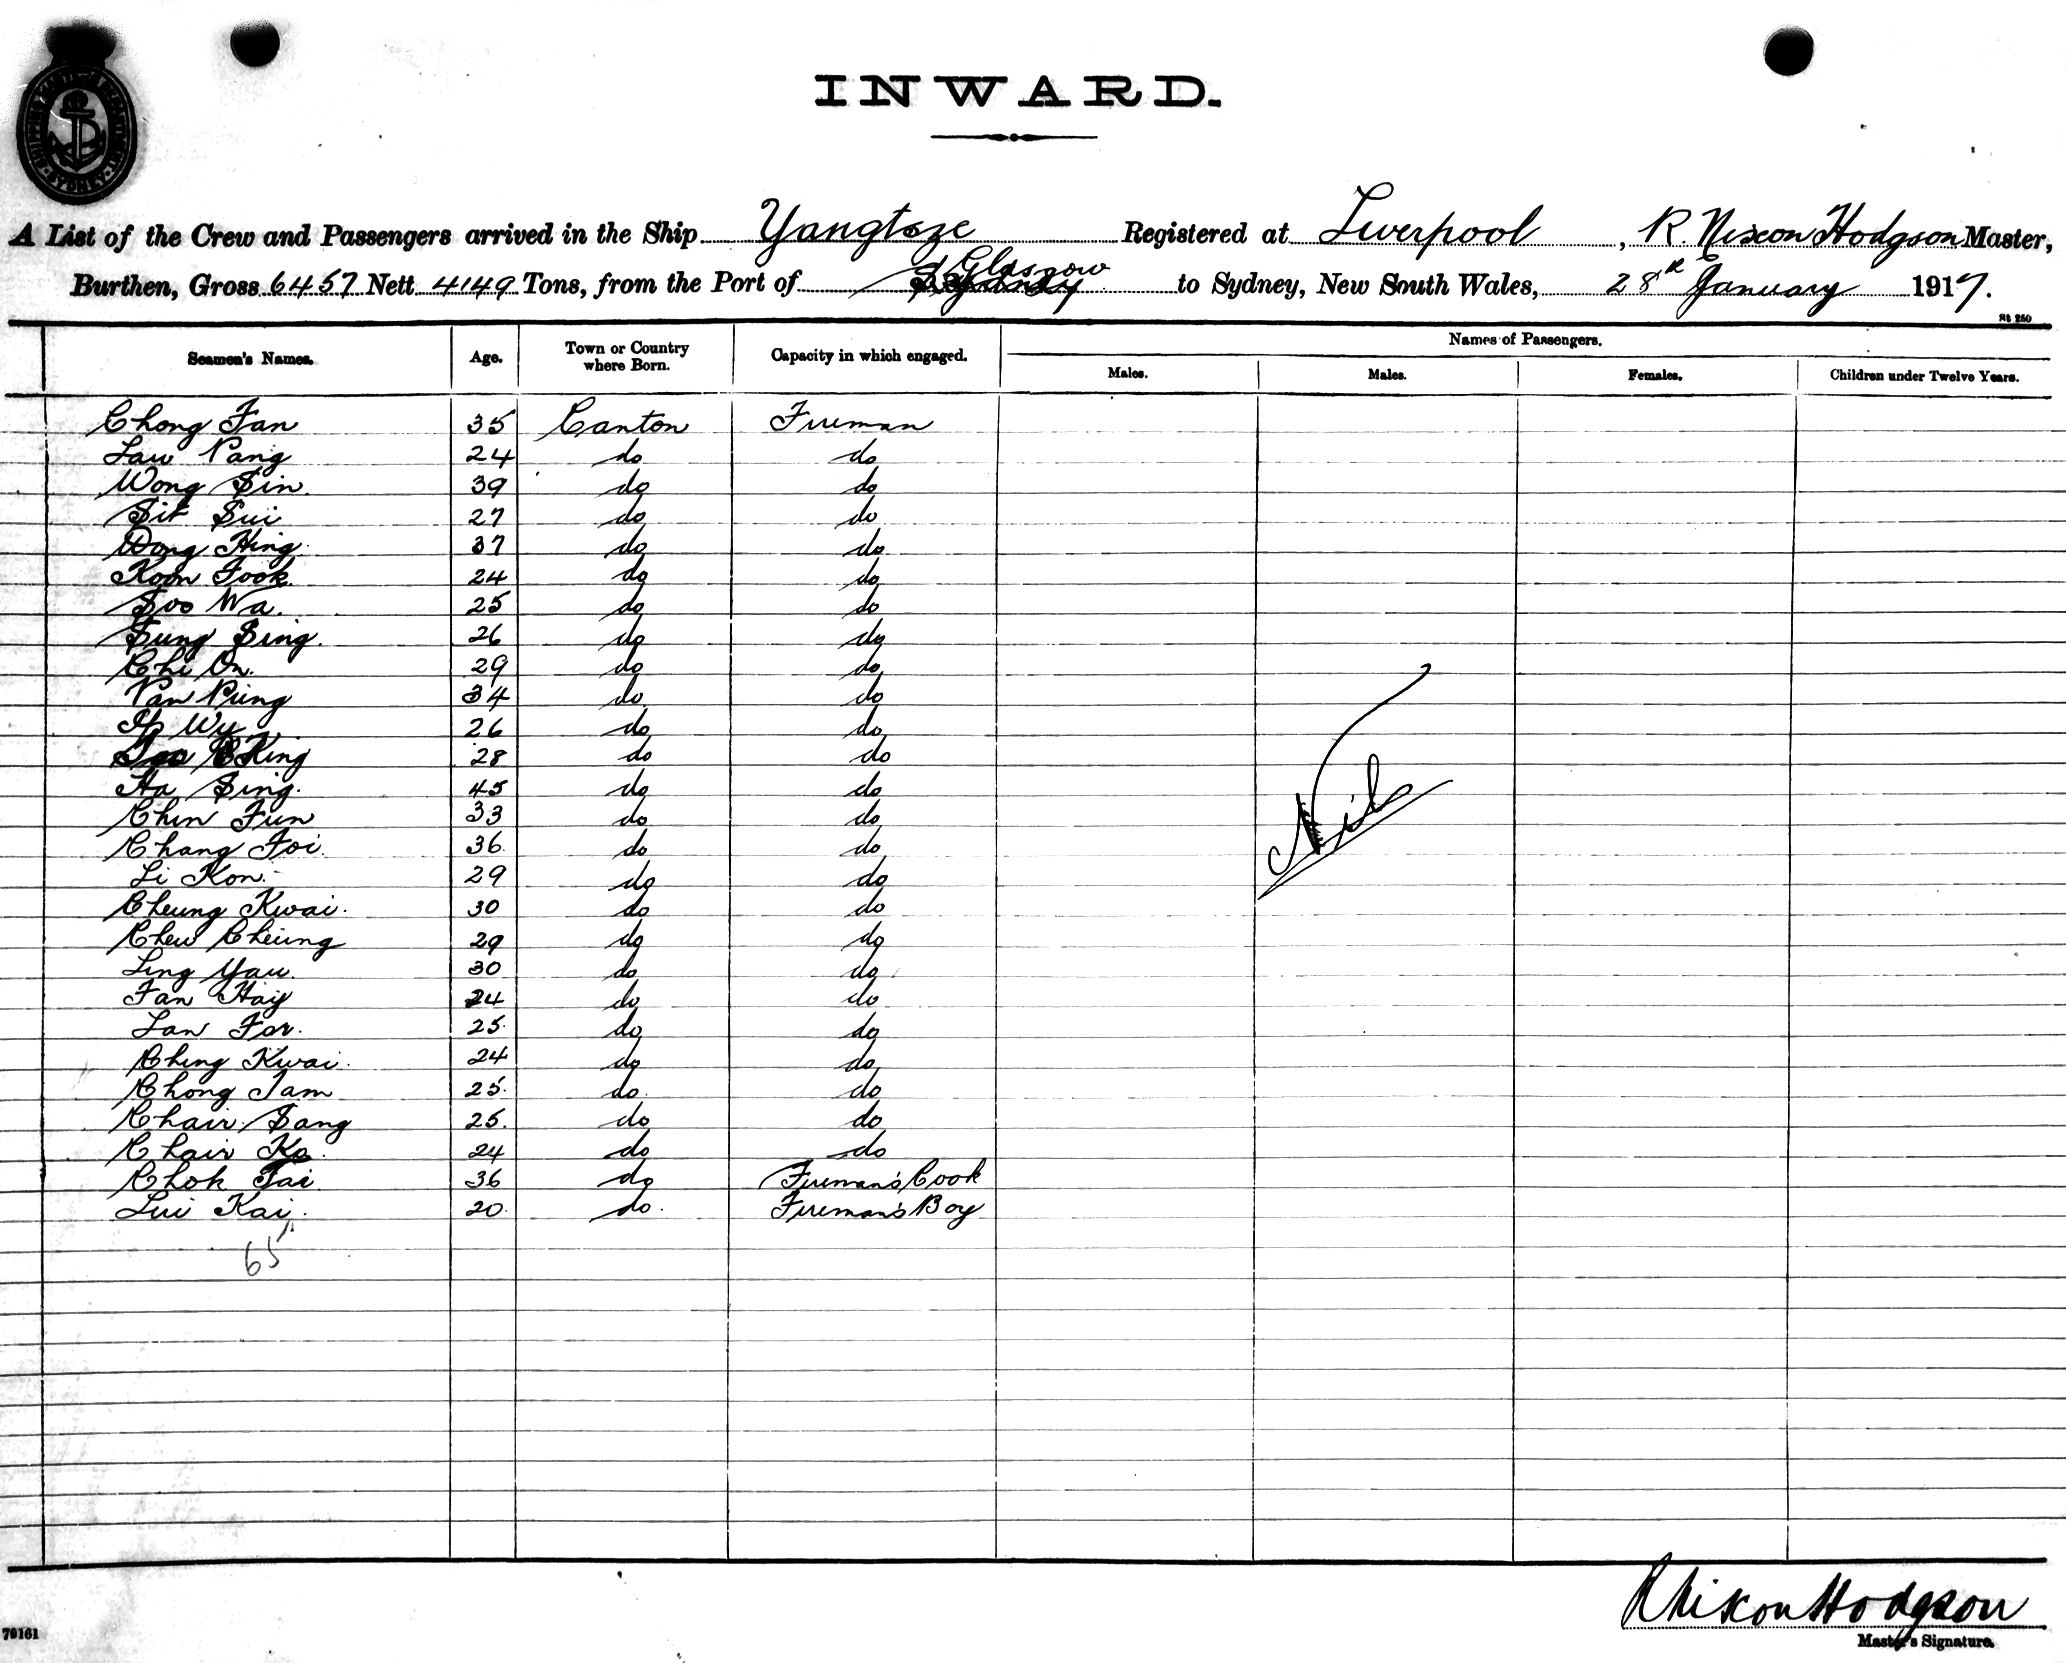 SHIPPING MASTER'S DEPARTMENT SYDNEY
INWARD.
A List of the Crew and Passengers arrived in the Ship Yangtsze Registered at Liverpool, R. Nixon Hodgson Master,
Glasgow
Burthen, Gross 6457 Nett 4149 Tons, from the Port of to Sydney, New South Wales, 28th January 1917.
St 250
Seamen's Names. Age. Town or Country where Born. Capacity in which engaged. Names of Passengers.
Males. Males. Females. Children under Twelve Years.
Chong Fan 35 Canton Fireman
Lau Pang 24 do do
Wong Sin. 39 do do
Sit Sui 27 do do
Wong Hing 37 do do
Koon Fook. 24 do do
Soo Wa. 25 do do
Sung Sing. 26 do do
Chi On. 29 do do
Pan Pung 34 do do
Ip Wy 26 do do
King 28 do do
Ha Sing. 45 do do
Chin Fun 33 do do
Chang Foi. 36 do do
Li Kon. 29 do do
Cheung Kwai. 30 do do
Chew Cheung 29 do do
Ling Yau. 30 do do
Fan Hay 24 do do
Lan For. 25. do do
Ching Kwai. 24 do do
Chong Tam 25. do do
Chair Sang 25. do do
Chair Ko. 24 do do
Chok Tai 36 do Fireman's Cook
Lui Kai. 20. do. Fireman's Boy
Nil
65
R Nixon Hodgson
Master's Signature.
79161